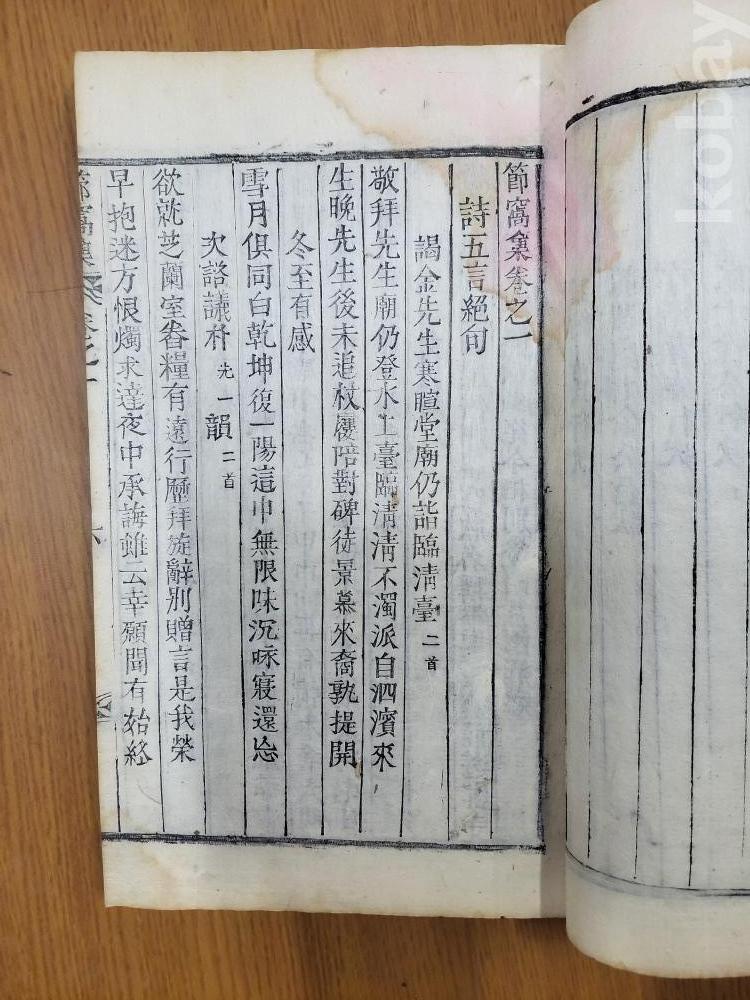 節窩集卷之一
詩五言絕句
謁金先生寒暄堂廟仍詣臨淸臺 二首
敬拜先生廟仍登水上臺臨淸淸不濁派自泗濱來
生晚先生後未追杖屨陪對碑徒景慕來裔孰提開
冬至有感
雪月俱同白乾坤復一陽這中無限味沉咏寢還忘
次諮議朴 先一 韻 二首
欲就芝蘭室舂糧有遠行歷拜旋辭別贈言是我榮
早抱迷方恨燭求達夜中承誨雖云幸願聞有始終
節窩集 卷之一
kobay